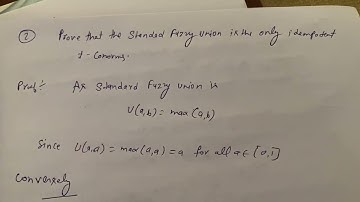 ② Prove that the Standard Fuzzy Union is the only idempotent
t-conorms.
Proof:- As Standard Fuzzy Union is
U(a,b) = max(a,b)
Since U(a,a) = max(a,a) = a for all a ∈ [0,1]
Conversely